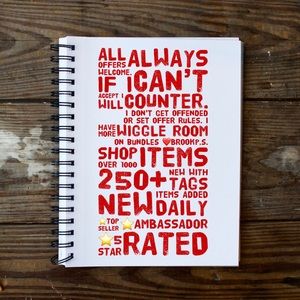 ALL ALWAYS
OFFERS
WELCOME.
IF I CAN'T
ACCEPT I
WILL COUNTER.
I DON'T GET OFFENDED
OR SET OFFER RULES. I
HAVE MORE WIGGLE ROOM
ON BUNDLES ❤BROOKP.S.
SHOP ITEMS
OVER 1000
250+ NEW WITH TAGS
ITEMS ADDED
NEW DAILY
⭐TOP SELLER ⭐AMBASSADOR
⭐5 STAR RATED